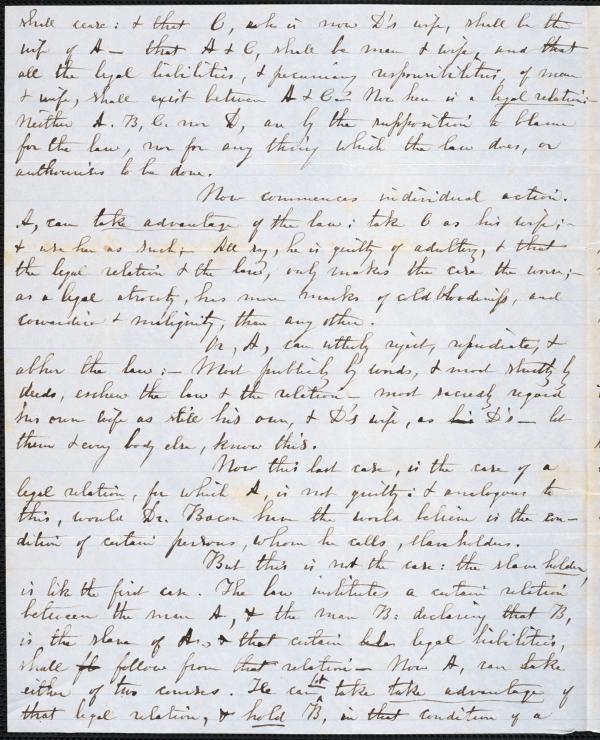 shall cease: & that C, who is now D's wife, shall be the
wife of A — that A & C, shall be man & wife, and that
all the legal liabilities, & pecuniary responsibilities, of man
& wife, shall exist between A & C — Now here is a legal relation —
Neither A. B, C. nor D, are by the supposition to blame
for the law, nor for any thing which the law does, or
authorises to be done.
Now commences individual action.
A, can take advantage of the law: take C as his wife; —
& use her as such; — All say, he is guilty of adultery, & that
the legal relation & the law, only makes the case the worse; —
as a legal atrocity, has more marks of coldbloodedness, and
cowardice & malignity, than any other.
Or, A, can utterly reject, repudiate, &
abhor the law: — Most publicly by words, & most strictly by
deeds, eschew the law & the relation — most sacredly regard
his own wife as still his own, & D's wife, as his D's — let
them & every body else, know this.
Now this last case, is the case of a
legal relation, for which A, is not guilty: & analogous to
this, would Dr. Bacon have the world believe is the con-
dition of certain persons, whom he calls, slaveholders.
But this is not the case: the slave holder,
is like the first case. The law institutes a certain relation
between the man A, & the man B: declaring that B,
is the slave of A, & that certain legal liabilities,
shall follow from that relation — Now A, can take
either of two courses. He can 1st take take advantage of
that legal relation, & hold B, in that condition of a